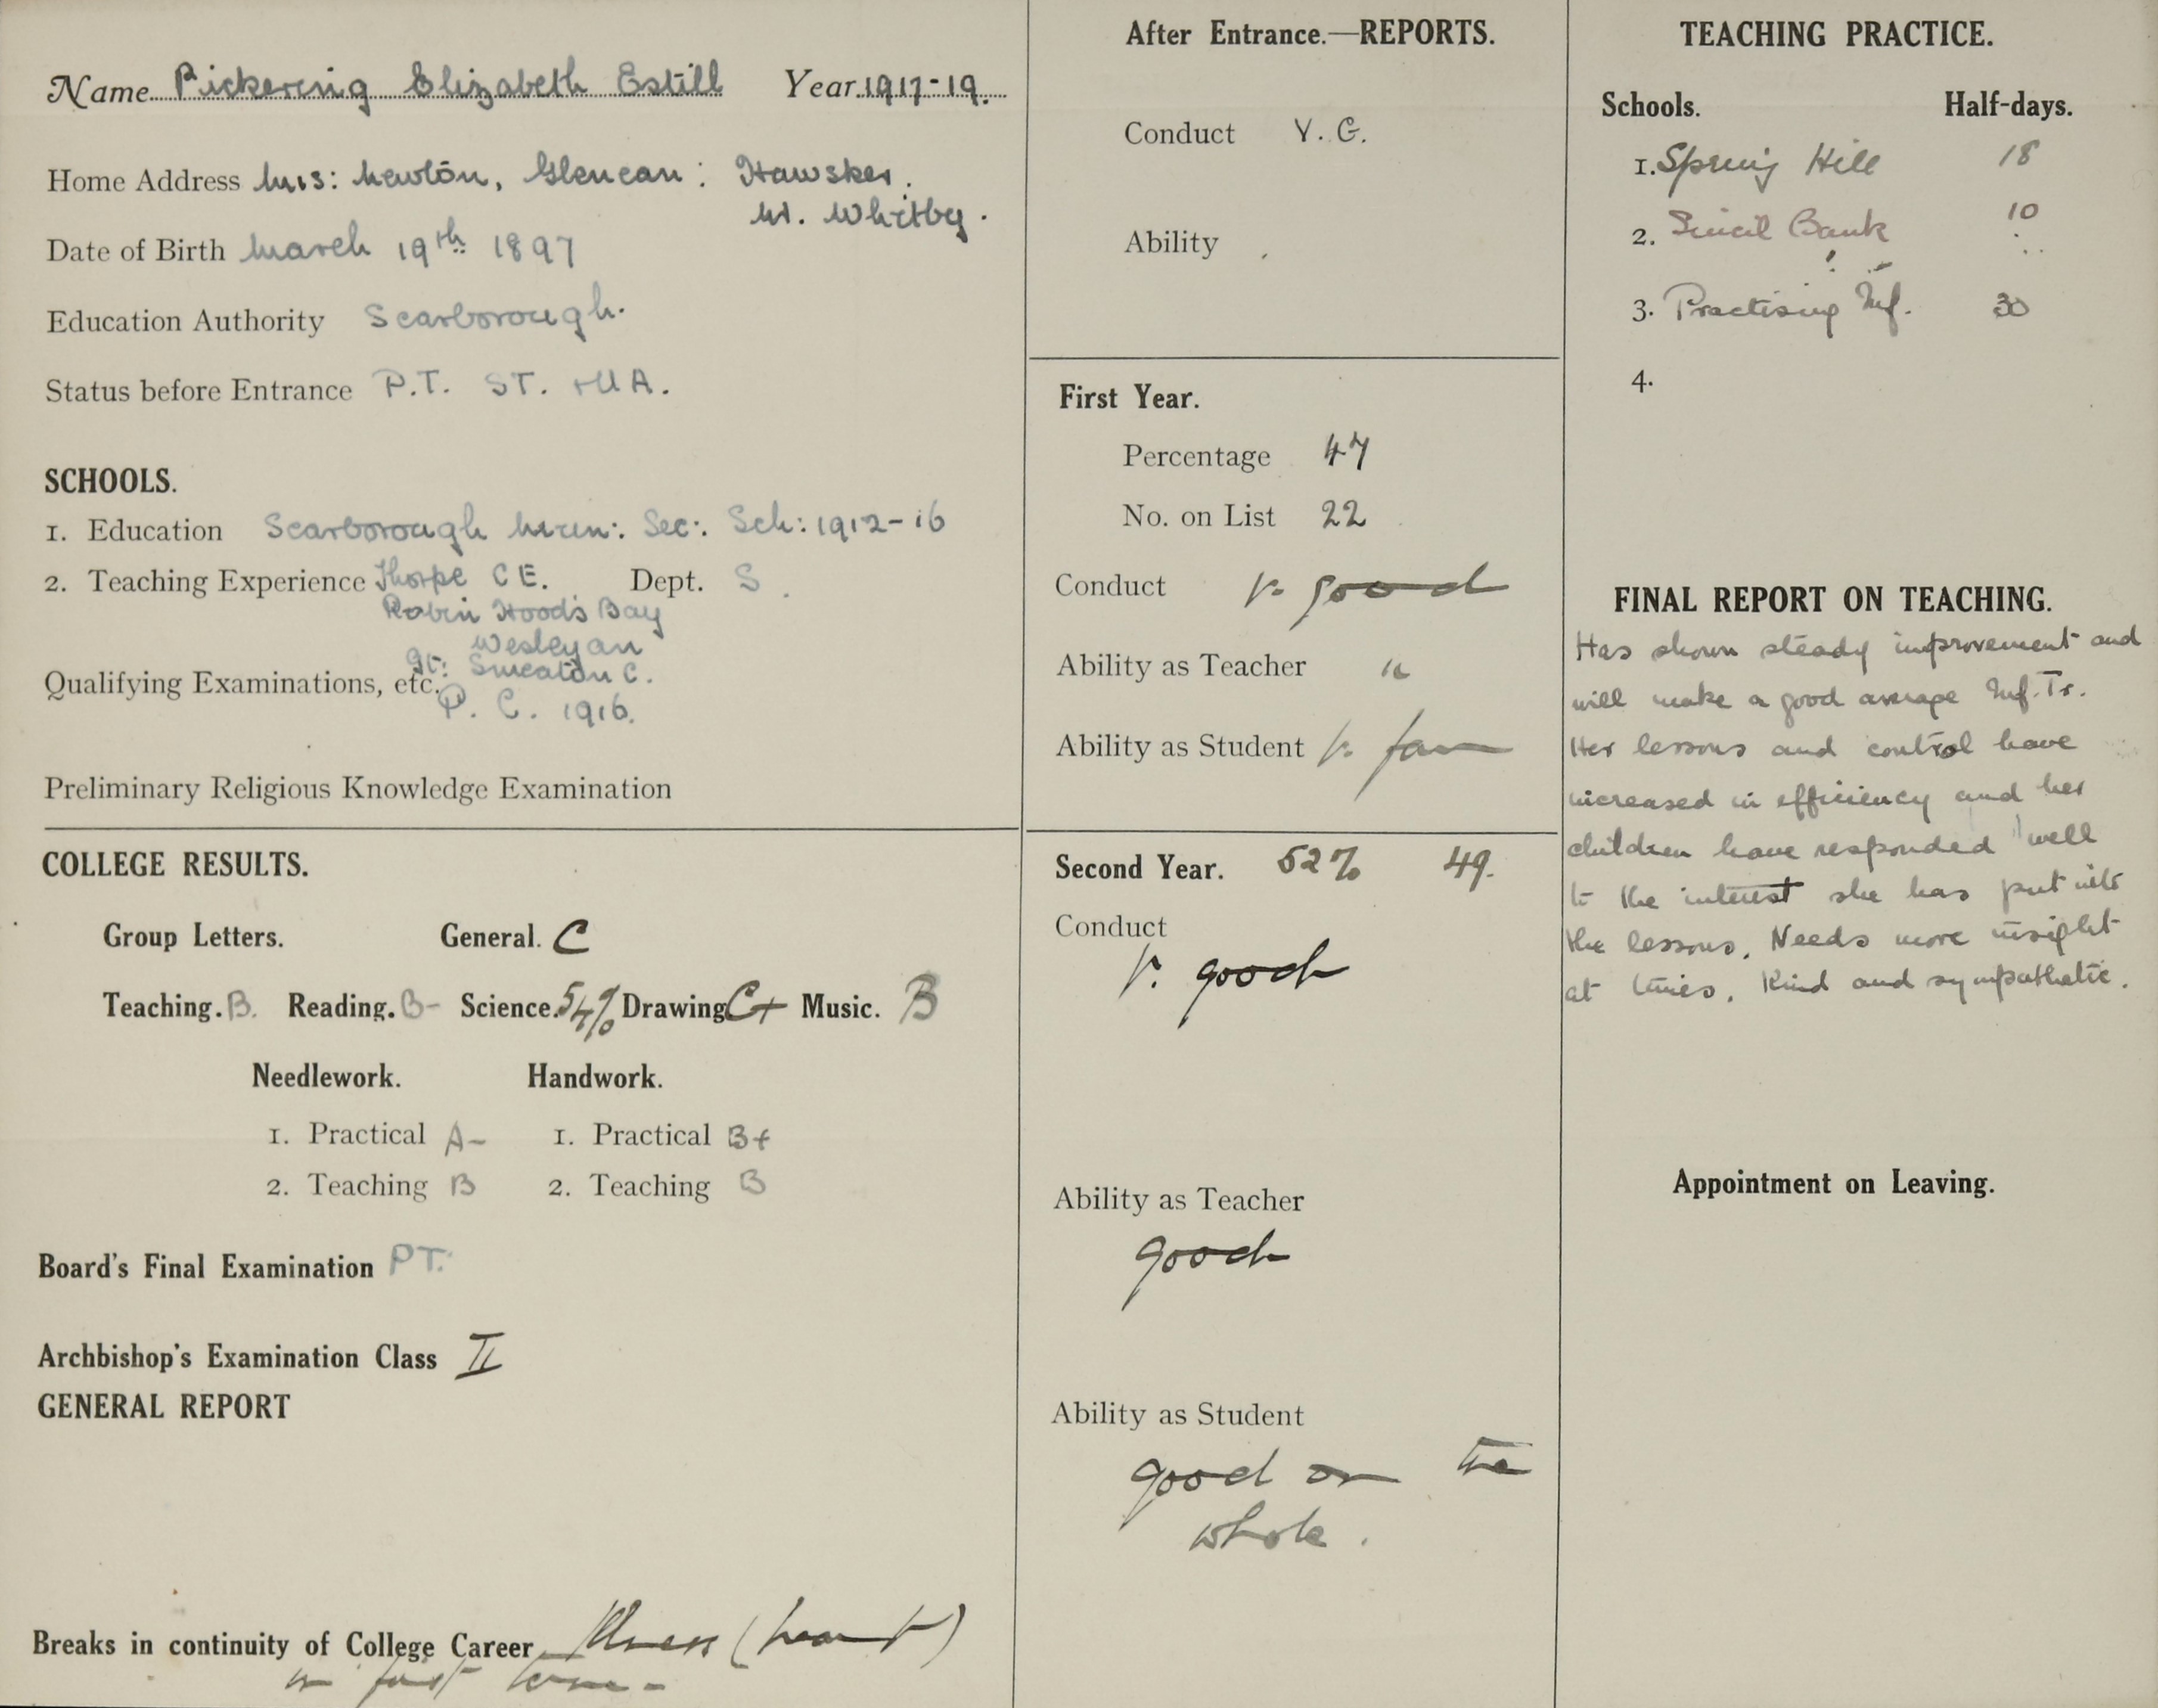 Name Pickering Elizabeth Estill Year 1917-19.
Home Address Mrs: Newton, Glencan: Hawsker.
Nr. Whitby.
Date of Birth March 19th 1897
Education Authority Scarborough.
Status before Entrance P.T. ST. + U A.
SCHOOLS.
1. Education Scarborough Mun: Sec: Sch: 1912-16
2. Teaching Experience Thorpe CE. Dept. S.
Robin Hood's Bay
Wesleyan
Gt: Smeaton C.
Qualifying Examinations, etc. P. C. 1916.
Preliminary Religious Knowledge Examination
COLLEGE RESULTS.
Group Letters. General. C
Teaching. B. Reading. B- Science. 54% Drawing C+ Music. B
Needlework. Handwork.
1. Practical A- 1. Practical B+
2. Teaching B 2. Teaching B
Board's Final Examination PT.
Archbishop's Examination Class II
GENERAL REPORT
Breaks in continuity of College Career Illness (heart)
in first term -
After Entrance.—REPORTS.
Conduct V. G.
Ability
First Year.
Percentage 47
No. on List 22
Conduct v. good
Ability as Teacher "
Ability as Student v. fair
Second Year. 52% 49.
Conduct
v. good
Ability as Teacher
good
Ability as Student
good on the
whole.
TEACHING PRACTICE.
Schools. Half-days.
1. Spring Hill 18
2. Sincil Bank 10
3. Practising Inf. 30
4.
FINAL REPORT ON TEACHING.
Has shown steady improvement and
will make a good average Inf. Tr.
Her lessons and control have
increased in efficiency and her
children have responded well
to the interest she has put into
the lessons. Needs more insight
at times. Kind and sympathetic.
Appointment on Leaving.